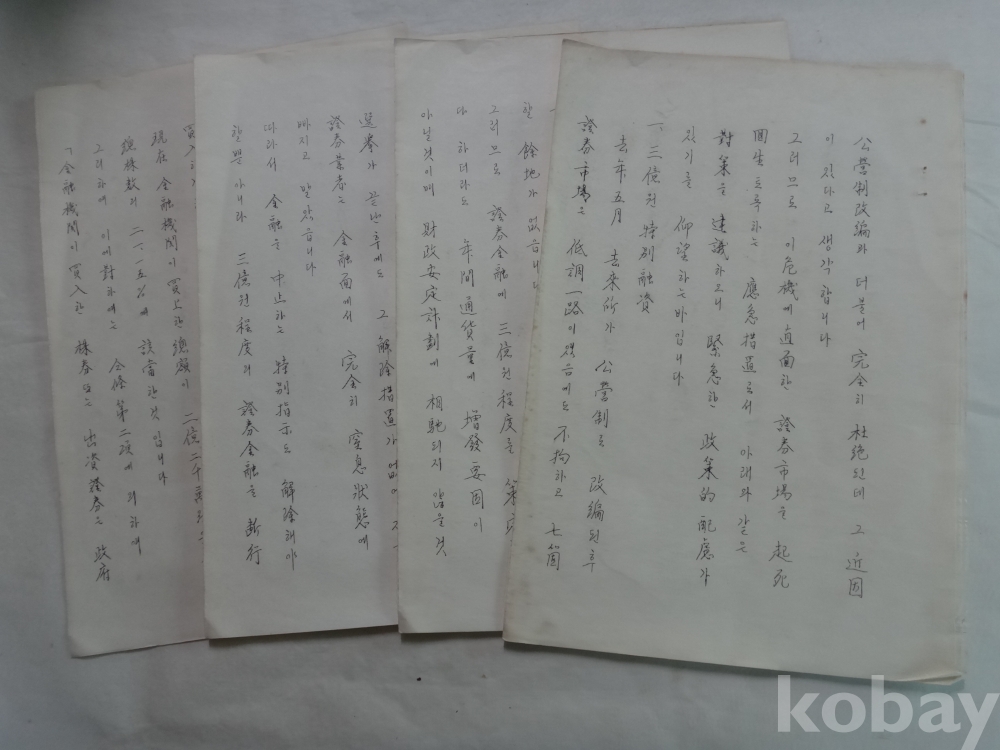 公營制改編와 더불어 完全히 杜絶된데 그 近因
이 있다고 생각합니다
그러므로 이 危機에 直面한 證券市場을 起死
回生토록하는 應急措置로서 아래와 같은
對策을 建議하오니 緊急한 政策的 配慮가
있기를 仰望하는바입니다
一、三億원 特別融資
去年 五月 去來所가 公營制로 改編된 후
證券市場은 低調一路이였음에도 不拘하고 七箇
할 餘地가 없읍니다
그러므로 證券金融에 三億원程度를
다 하더라도 年間通貨量에 增發要因이
아닐것이며 財政安定計劃에 相馳되지 않을것
選擧가 끝난후에도 그 解除措置가 없어
證券業者는 金融面에서 完全히 窒息狀態에
빠지고 말았읍니다
따라서 金融을 中止하는 特別指示도 解除해야
할뿐 아니라 三億원程度의 證券金融을 斷行
買入
現在 金融機關이 買上한 總額이 二億二千萬
總株數의 二一·一五%에 該當한것입니다
그러하며 이에對하여는 仝條第二項에 의하여
「金融機關이 買入한 株券또는 出資證券는 政府
kobay